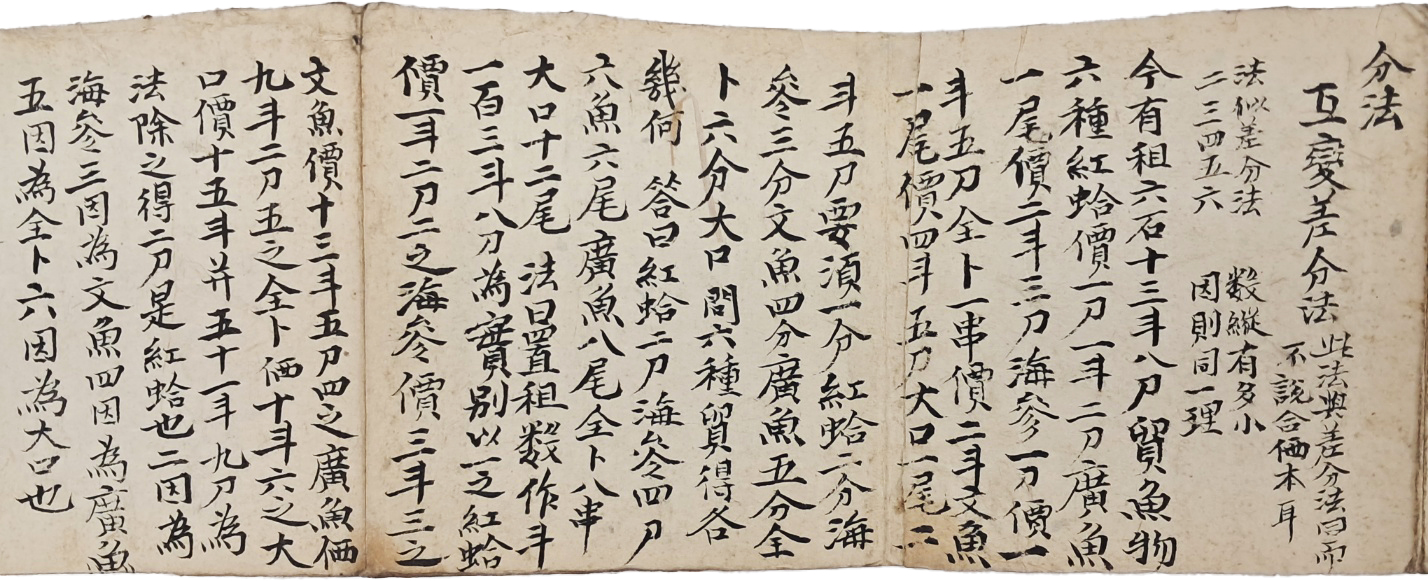 分法
互變差分法 此法與差分法曰而
不說合価本耳
法似差分法 数縱有多小
二三四五六 因則同一理
今有租六石十三斗八刀貿魚物
六種紅蛤價一刀一斗二刀廣魚
一尾價二斗三刀海參一刀價一
斗五刀全卜一串價二斗文魚
一尾價四斗五刀大口一尾二
斗五刀要須一分紅蛤二分海
參三分文魚四分廣魚五分全
卜六分大口問六種貿得各
幾何 答曰紅蛤二刀海參四刀
六魚六尾廣魚八尾全卜八串
大口十二尾 法曰置租数作斗
一百三斗八刀為實別以一之紅蛤
價一斗二刀二之海參價三斗三之
文魚價十三斗五刀四之廣魚価
九斗二刀五之全卜価十斗六之大
口價十五斗并五十一斗九刀為
法除之得二刀是紅蛤也二因為
海參三因為文魚四因為廣魚
五因為全卜六因為大口也